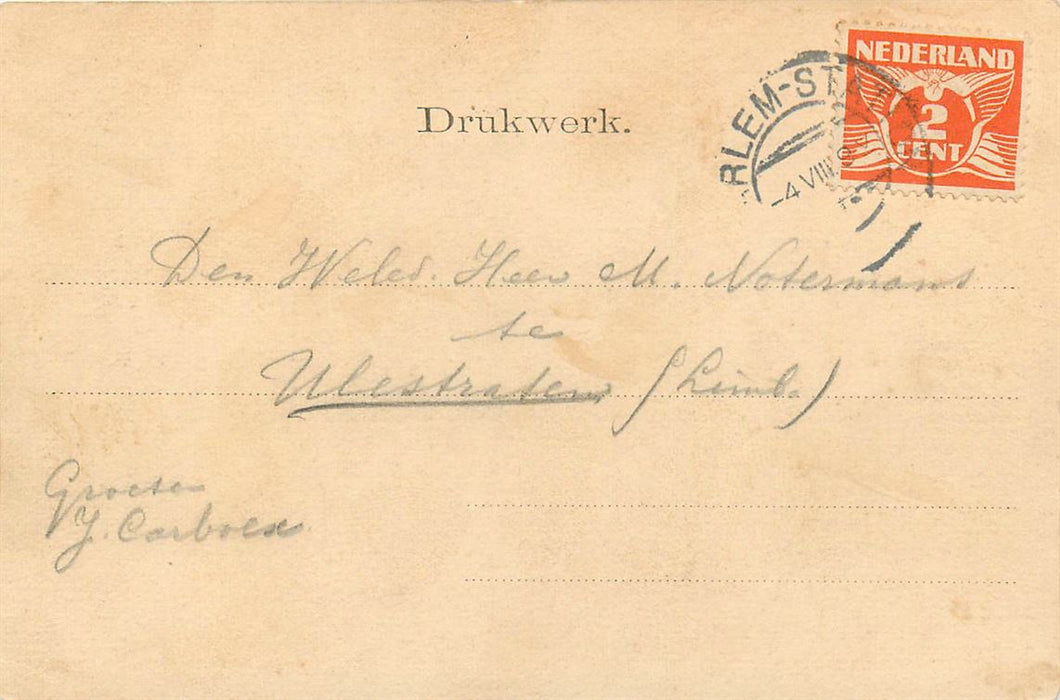 NEDERLAND
2
CENT
RLEM-STA
-4 VIII
Drukwerk.
Den Weled. Heer M. Notermans
te
Ulestraten (Limb.)
Groeten
J. Carboex